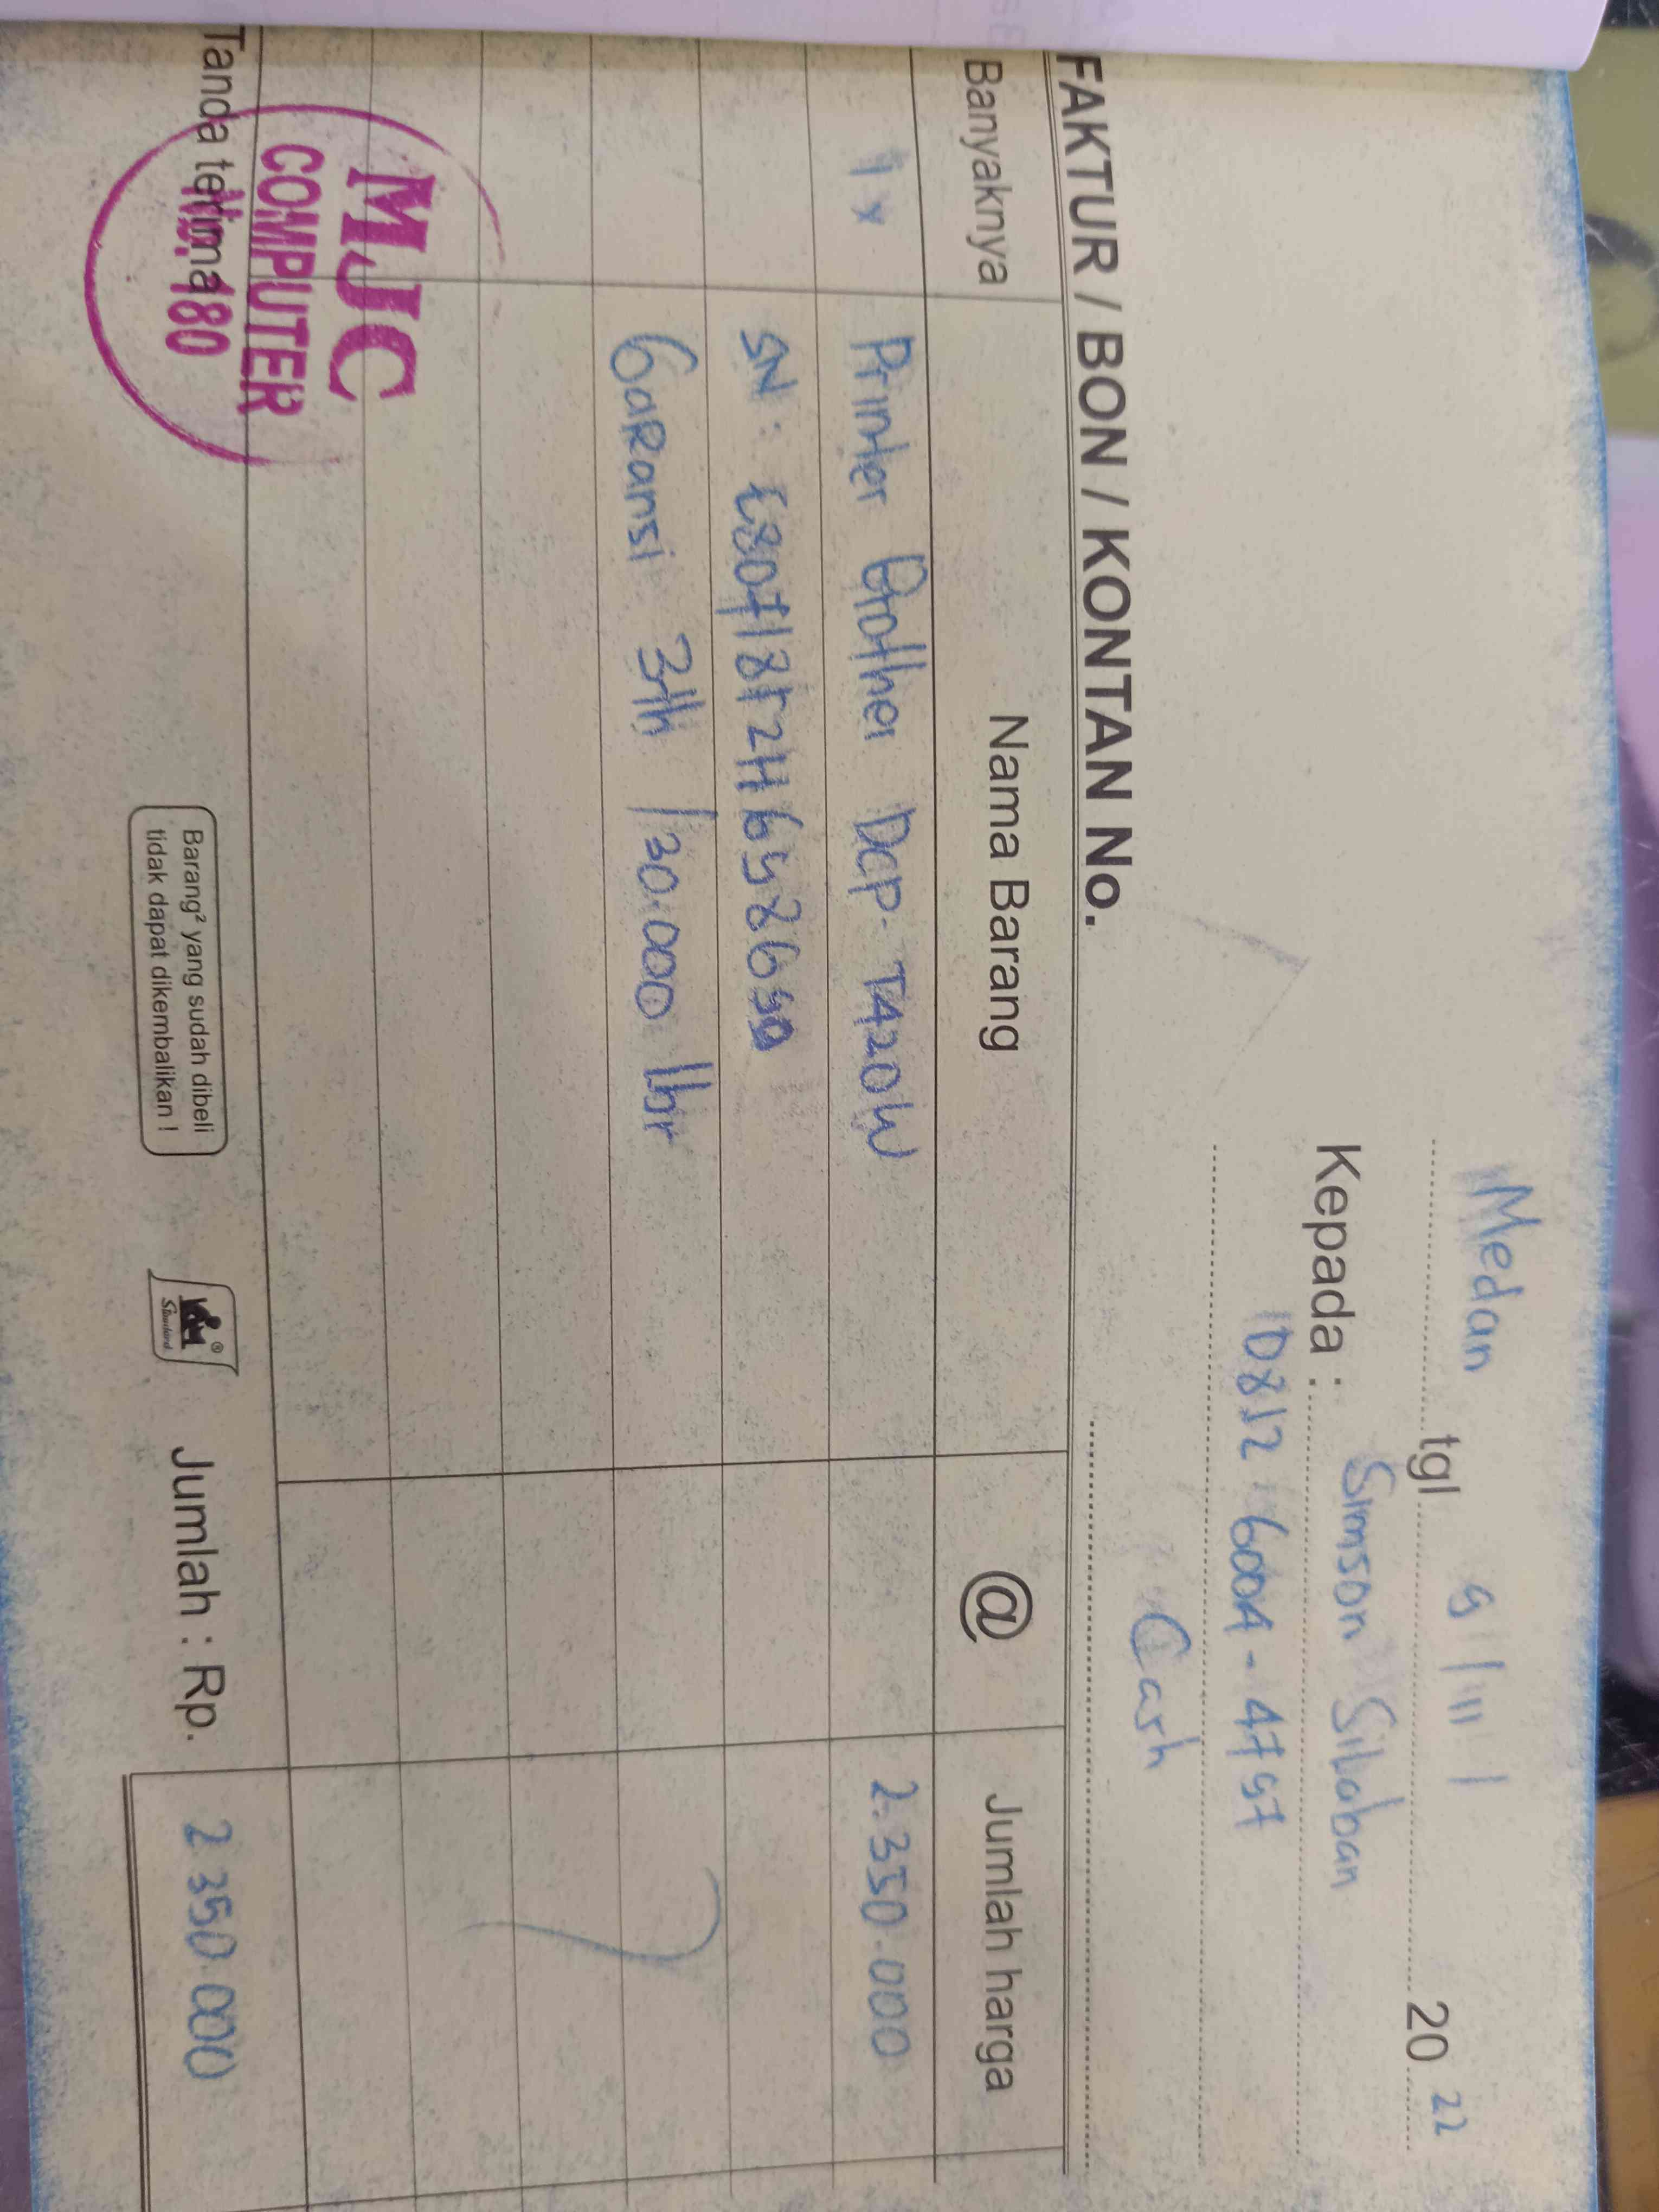 Medan tgl 9/III/ 20 22
Kepada : Simson Silaban
0812 6004-4797
Cash
FAKTUR / BON / KONTAN No.
Banyaknya Nama Barang @ Jumlah harga
1x Printer Brother DCP-T420W 2.350.000
SN :
Garansi 3th / 30.000 lbr
Tanda terima
Barang² yang sudah dibeli
tidak dapat dikembalikan !
Standard
Jumlah : Rp. 2 350.000
MJC
COMPUTER
No. 180